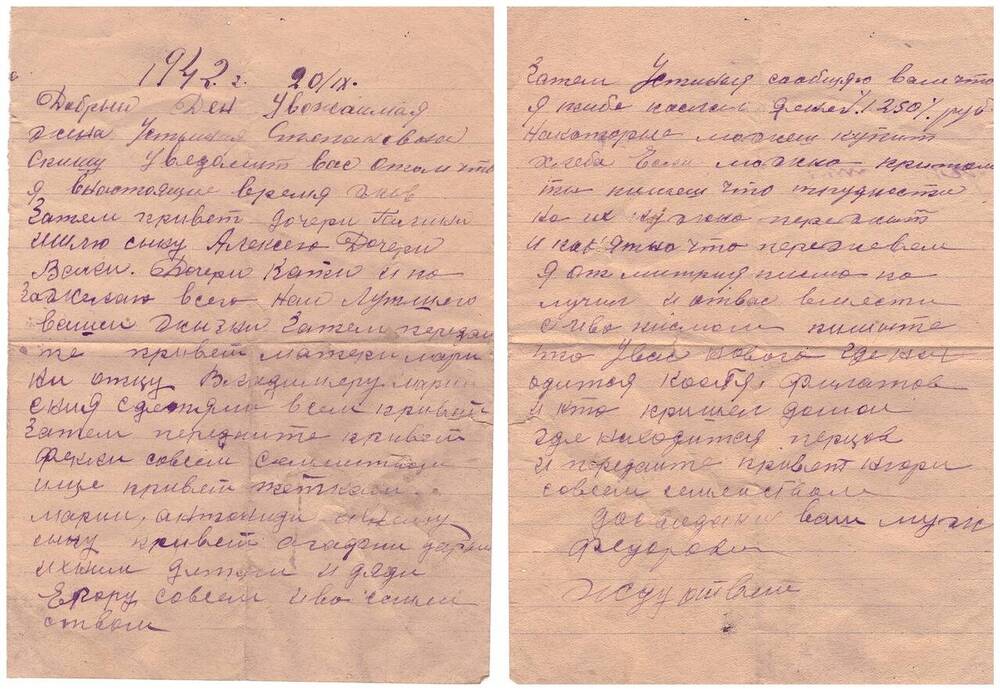 1942 г. 20/IX.
Добрый Ден Увожаимая
жена Устиния Степановна
спишу Уведамит вас отом что
я внастоящие время жив
Затем привет дочери Полини
ишлю сыну Алексею Дочери
Дочери Кати и по
зажелаю всего наи лутшего
вашей жизни Затем переда
те привет матери мари
ки отцу Владимеру мари
ския сдетями всем привет
Затем передайте привет
совсем семейством
ище привет тёткам
марии,
сыну привет
ихним детям и дяди
Егору совсем иво семей
ством
Затем Устиния сообщяю вам что
я тибе послал денег 1250 руб
накоторые можеш купит
хлеба Если можно притом
ты пишеш что трудности
но их нужно пережит
и понятно что переживем
Я от митрия писмо по
лучил и отвас вмести
сиво писмом пишите
что Увас нового где нах
одится Костя, Филатов
и кто пришел домой
где находится перцов
и передайте привет
совсем семейством
досвидания ваш муж
Федорович
Жду ответ